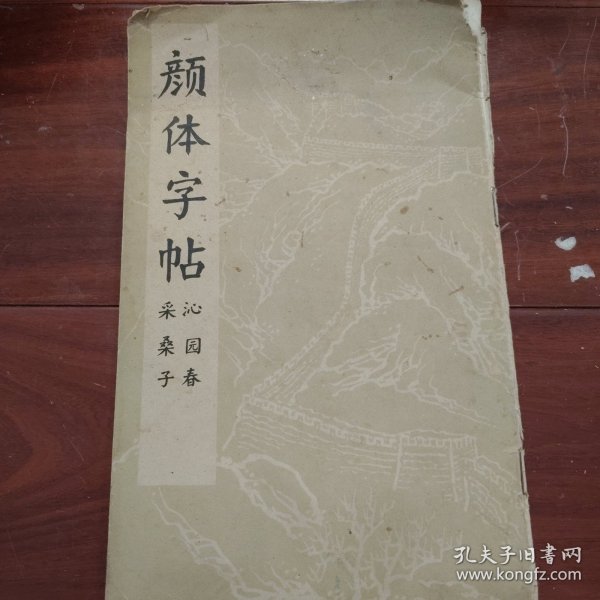 颜体字帖
沁园春
采桑子
孔夫子旧書网
www.kongfz.com